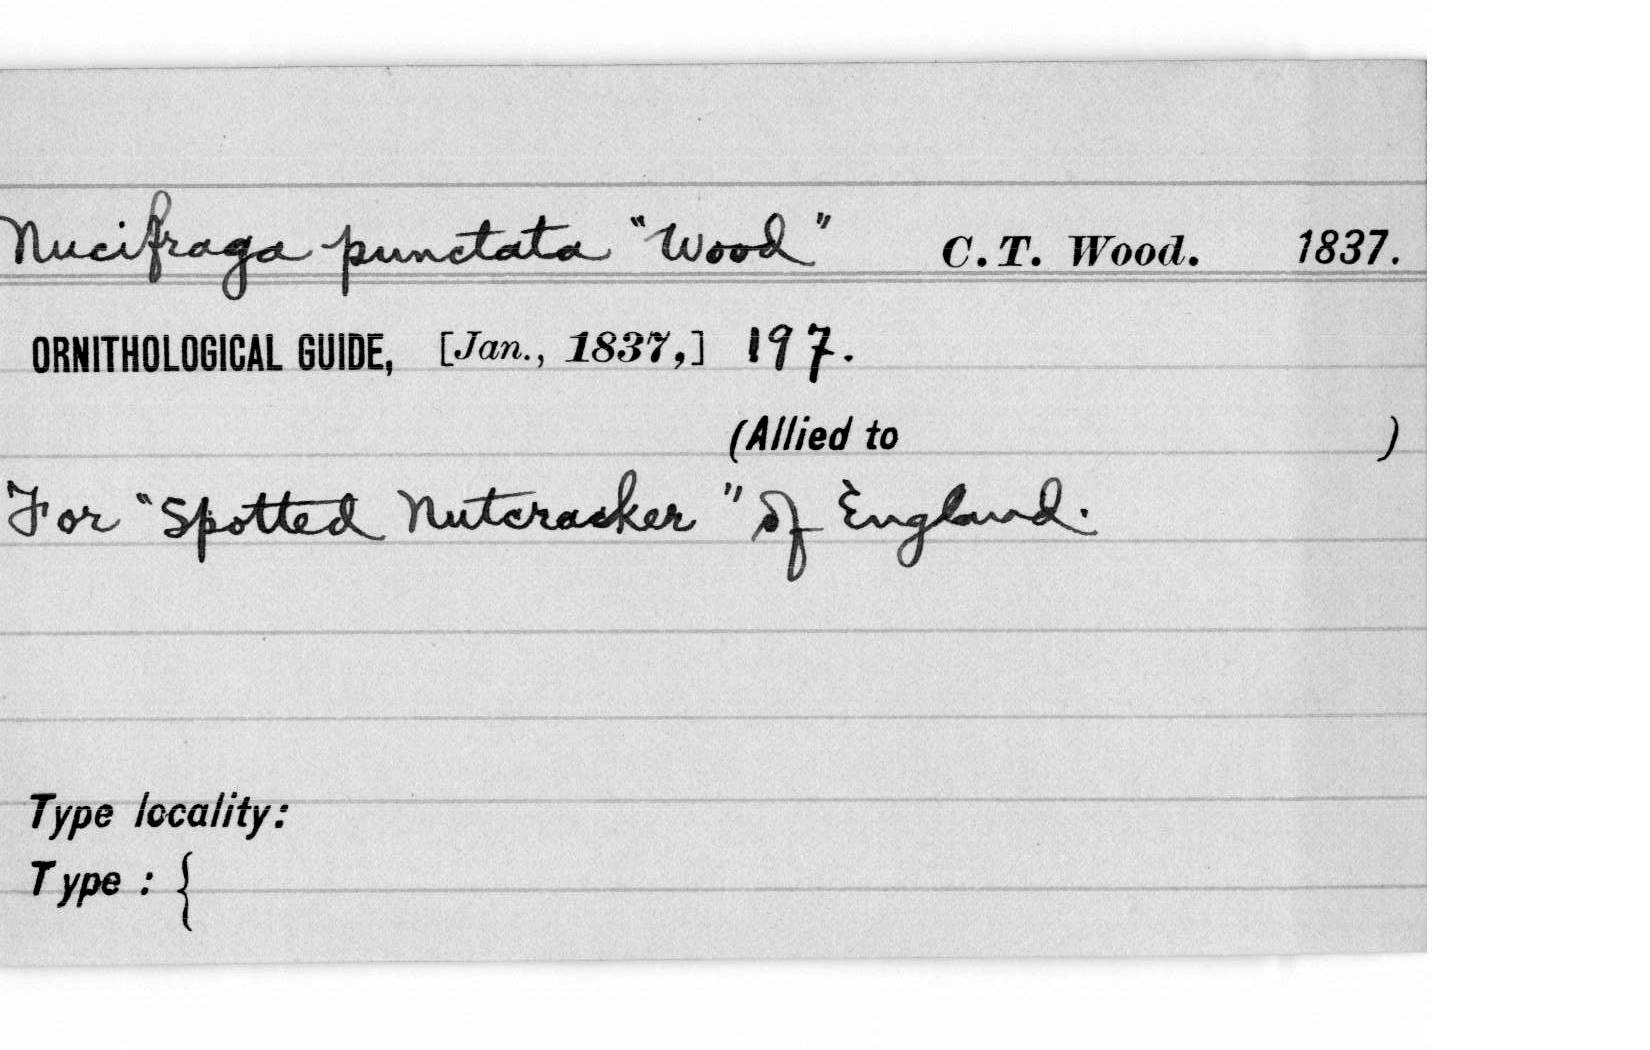 Nucifraga punctata "Wood" C.T. Wood. 1837.
ORNITHOLOGICAL GUIDE, [Jan., 1837,] 197.
(Allied to )
For "Spotted Nutcracker" of England.
Type locality:
Type : {